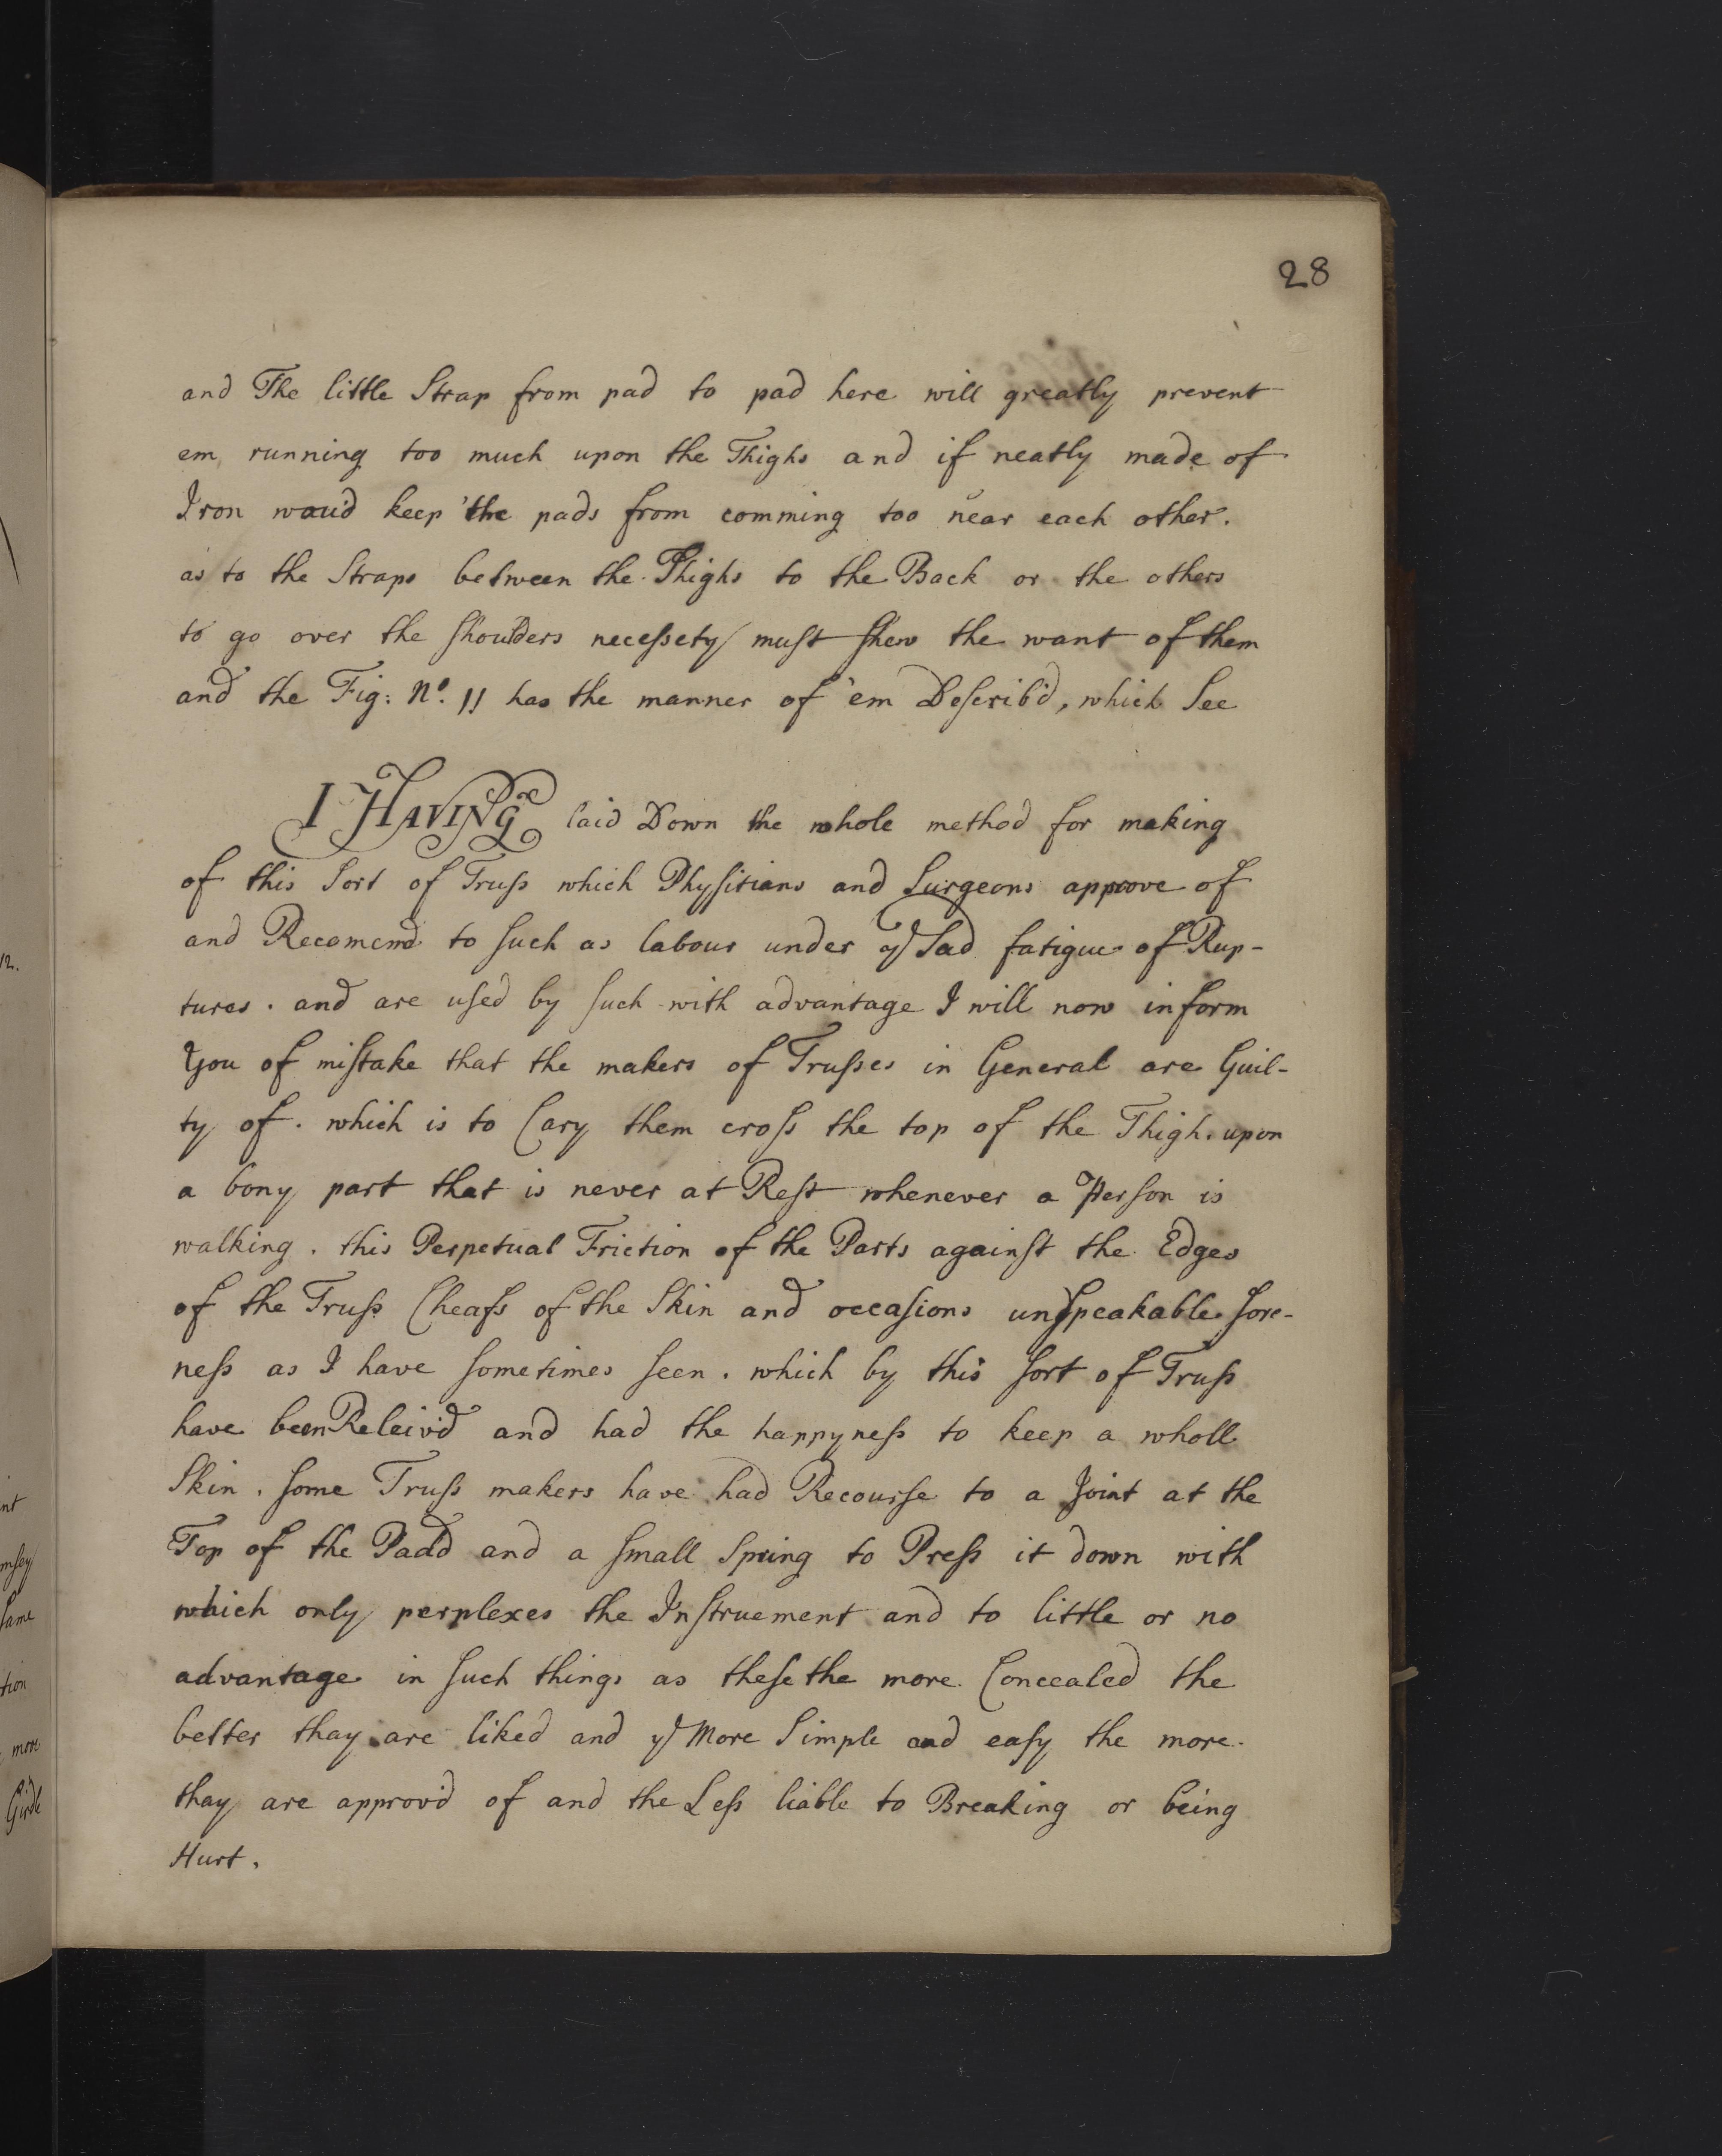 28
and The little Strap from pad to pad here will greatly prevent
em running too much upon the Thighs and if neatly made of
Iron wou'd keep the pads from comming too near each other.
as to the Straps between the Thighs to the Back or the others
to go over the shoulders necessety must shew the want of them
and the Fig: No. 11 has the manner of 'em Describ'd, which See
I HAVING laid Down the whole method for making
of this Sort of Truss which Physitians and Surgeons approve of
and Recomend to such as labour under ye Sad fatigue of Rup-
tures. and are used by such with advantage I will now inform
You of mistake that the makers of Trusses in General are Guil-
ty of. which is to Cary them cross the top of the Thigh. upon
a bony part that is never at Rest whenever a Person is
walking. this Perpetual Friction of the Parts against the Edges
of the Truss Cheafs of the Skin and occasions unspeakable sore-
ness as I have sometimes seen. which by this sort of Truss
have been Releiv'd and had the happyness to keep a wholl
Skin. some Truss makers have had Recourse to a Joint at the
Top of the Padd and a small Spring to Press it down with
which only perplexes the Instruement and to little or no
advantage in such things as these the more Concealed the
better thay are liked and ye More Simple and easy the more
thay are approv'd of and the Less liable to Breaking or being
Hurt.
12.
nt
same
tion
more
Girdle